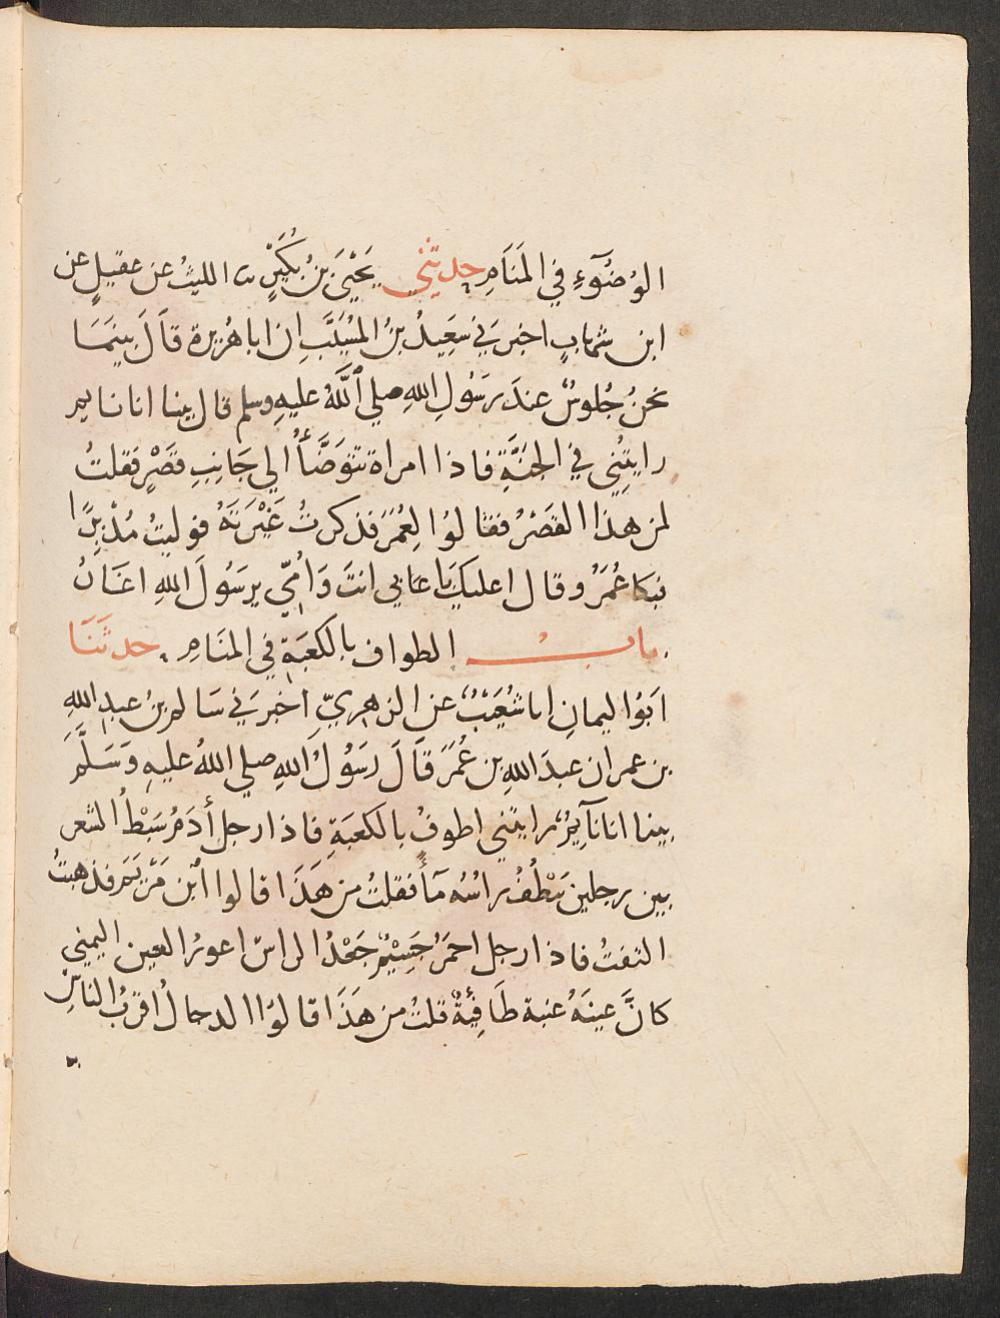 الوُضُوٓءِ في المَنَامِ حدثني يَحْيَى بنُ بُكَيْرٍ ثنا الليثُ عن عقيلٍ عن
ابن شهابٍ اخبرَني سَعِيدُ بنُ المُسَيَّبِ ان ابا هُرَيرة قَالَ بينَمَا
نحنُ جُلوسٌ عندَ رَسُولِ اللهِ صلي اللهُ عليهِ وسلم قال بينا انا نايم
رايتُني في الجنَّةِ فاذا امراة تتوَضَّأُ الي جَانِبِ قَصْرٍ فقلتُ
لمن هذا القَصْرُ فقالوُا لِعُمَرَ فذكرتُ غَيْرَتَهُ فوليتُ مُدْبِرًا
فبكا عُمَرُ وقال اعليكَ بابي انتَ وَاُمِّي يرسَُولَ اللهِ اغَارُ
بابُ الطواف بالكعبَةِ في المنَامِ حدثَنَا
ابَوُا اليمانِ انا شُعَيْبٌ عن الزهريّ اخبرَني سَالمُ بنُ عبدِ اللهِ
بن عمر ان عبدَ اللهِ بن عُمَرَ قَالَ رسَوُلُ اللهِ صلي اللهُ عليهِ وَسَلَّمَ
بينا انا نَآيِمٌ رايتني اطوفُ بالكعبَةِ فاذا رجل أدَمُ سَبْطُ الشعرِ
بين رجلين يَنْطُفُ راسُه مَآءً فقلتُ من هَذَا قالوا ابْن مَرْيَمَ فذهبتُ
التفتُ فاذا رجل احمَرُ جَسِيْمٌ جَعْدُ الراسِ اعورُ العين اليمني
كانَّ عينَهُ عنبة طَافِيَةٌ قلتُ من هَذَا قالوُا الدجالُ اقرَبُ الناسِ